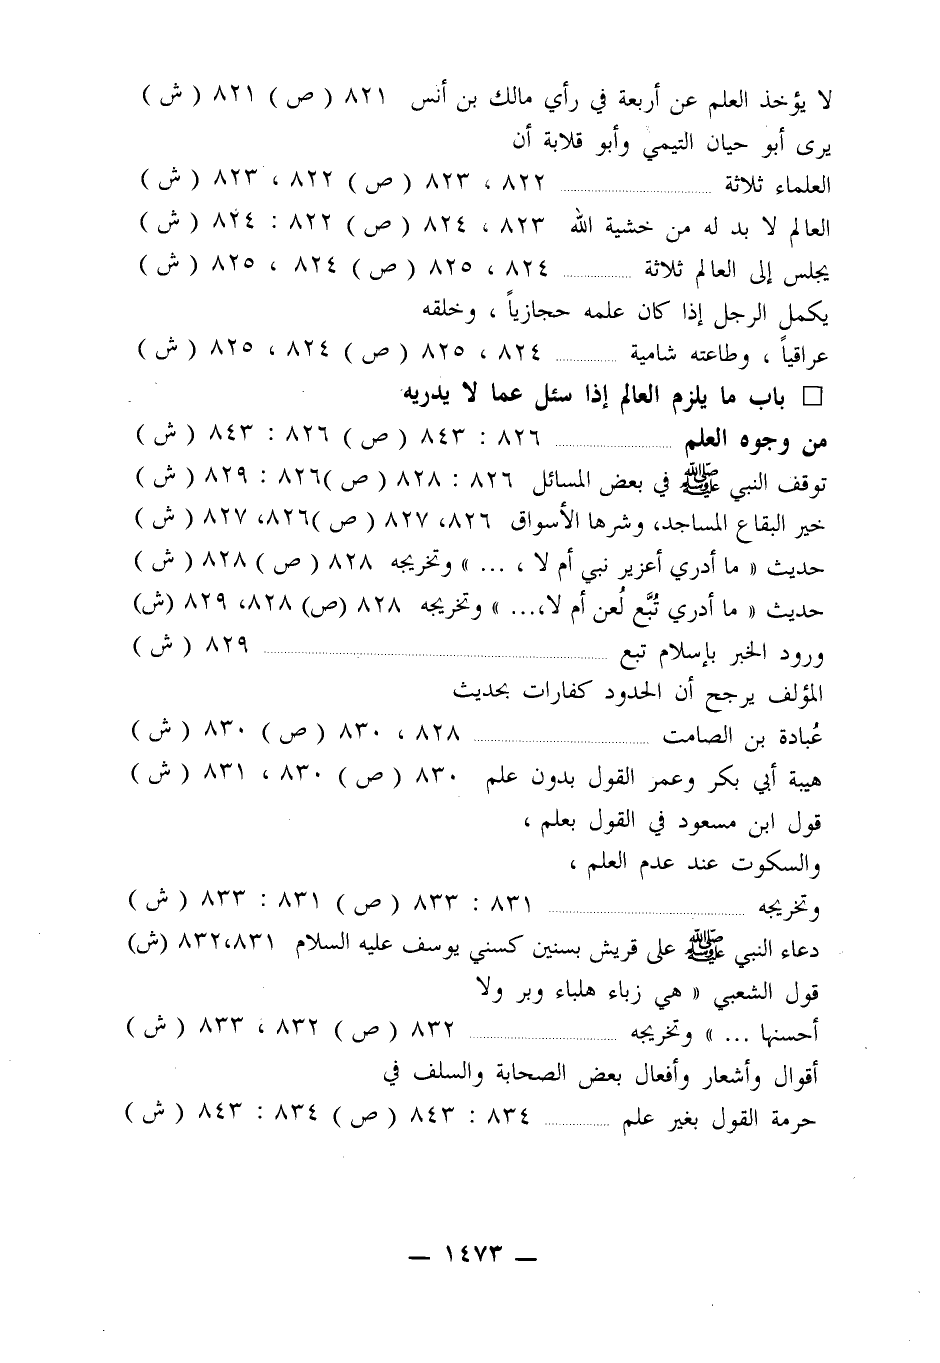 لا يؤخذ العلم عن أربعة في رأي مالك بن أنس ٨٢١ ( ص ) ٨٢١ ( ش )
يرى أبو حيان التيمي وأبو قلابة أن
العلماء ثلاثة ........ ٨٢٢ ، ٨٢٣ ( ص ) ٨٢٢ ، ٨٢٣ ( ش )
العالم لا بد له من خشية الله ٨٢٣ ، ٨٢٤ ( ص ) ٨٢٢ : ٨٢٤ ( ش )
يجلس إلى العالم ثلاثة ........ ٨٢٤ ، ٨٢٥ ( ص ) ٨٢٤ ، ٨٢٥ ( ش )
يكمل الرجل إذا كان علمه حجازياً ، وخلقه
عراقياً ، وطاعته شامية ........ ٨٢٤ ، ٨٢٥ ( ص ) ٨٢٤ ، ٨٢٥ ( ش )
□ باب ما يلزم العالم إذا سئل عما لا يدريه
من وجوه العلم ........ ٨٢٦ : ٨٤٣ ( ص ) ٨٢٦ : ٨٤٣ ( ش )
توقف النبي ﷺ في بعض المسائل ٨٢٦ : ٨٢٨ ( ص )٨٢٦ : ٨٢٩ ( ش )
خير البقاع المساجد، وشرها الأسواق ٨٢٦، ٨٢٧ ( ص )٨٢٦، ٨٢٧ ( ش )
حديث « ما أدري أعزير نبي أم لا ، ... » وتخريجه ٨٢٨ ( ص ) ٨٢٨ ( ش )
حديث « ما أدري تُبَّع لُعن أم لا،... » وتخريجه ٨٢٨ (ص) ٨٢٨، ٨٢٩ (ش)
ورود الخبر بإسلام تبع ........ ٨٢٩ ( ش )
المؤلف يرجح أن الحدود كفارات بحديث
عُبادة بن الصامت ........ ٨٢٨ ، ٨٣٠ ( ص ) ٨٣٠ ( ش )
هيبة أبي بكر وعمر القول بدون علم ٨٣٠ ( ص ) ٨٣٠ ، ٨٣١ ( ش )
قول ابن مسعود في القول بعلم ،
والسكوت عند عدم العلم ،
وتخريجه ........ ٨٣١ : ٨٣٣ ( ص ) ٨٣١ : ٨٣٣ ( ش )
دعاء النبي ﷺ على قريش بسنين كسني يوسف عليه السلام ٨٣١،٨٣٢ (ش)
قول الشعبي « هي زباء هلباء وبر ولا
أحسنها ... » وتخريجه ........ ٨٣٢ ( ص ) ٨٣٢ ، ٨٣٣ ( ش )
أقوال وأشعار وأفعال بعض الصحابة والسلف في
حرمة القول بغير علم ........ ٨٣٤ : ٨٤٣ ( ص ) ٨٣٤ : ٨٤٣ ( ش )
— ١٤٧٣ —